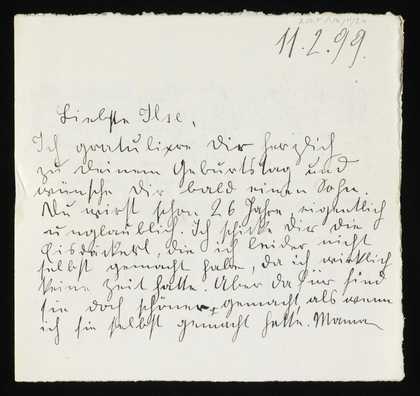 11.2.99.
Liebste Ilse,
Ich gratuliere Dir herzlich
zu Deinem Geburtstag und
wünsche Dir bald einen Sohn.
Du wirst schon 26 Jahre, eigentlich
unglaublich. Ich schicke Dir die
Eisdackerl, die ich leider nicht
selbst gemacht habe, da ich wirklich
keine Zeit hatte. Aber dafür sind
sie doch schöner gemacht als wenn
ich sie selbst gemacht hätte. Mama